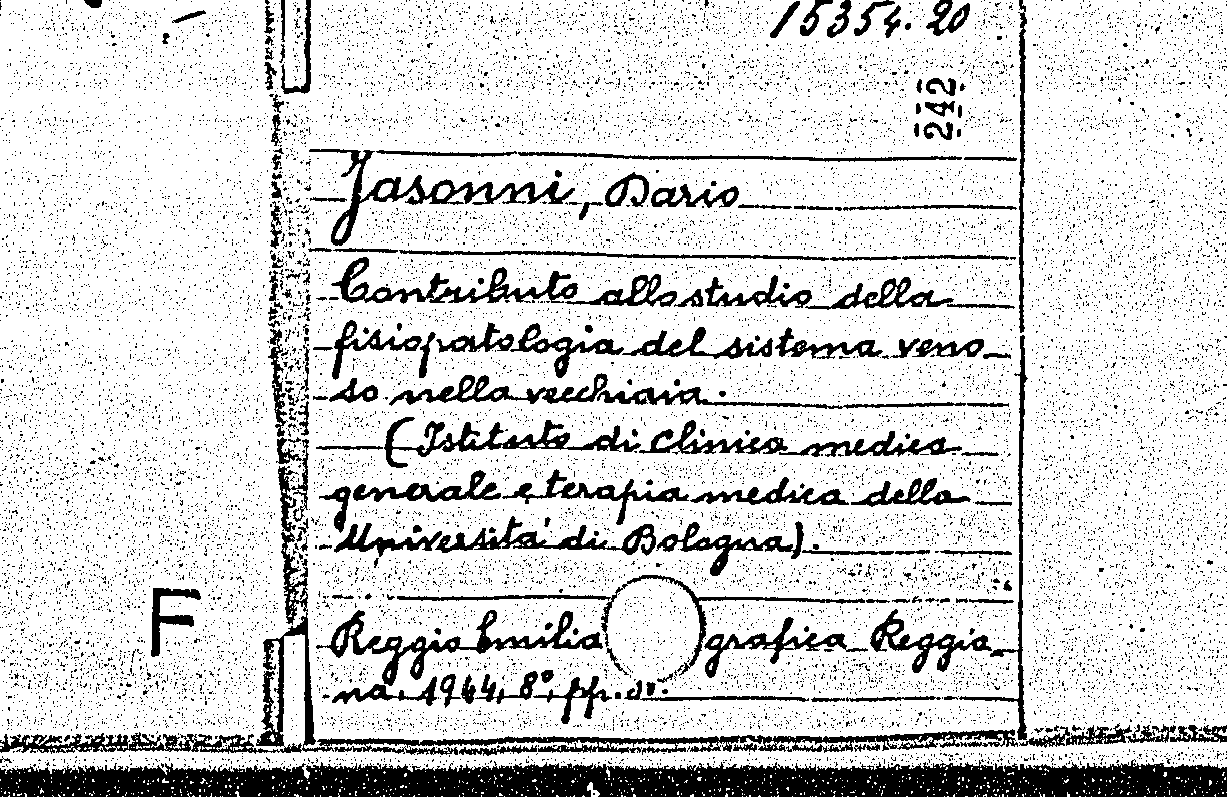 15354. 20
242
Jasonni, Dario
Contributo allo studio della
fisiopatologia del sistema veno
so nella vecchiaia.
(Istituto di clinica medica
generale e terapia medica della
Università di Bologna).
F
Reggio Emilia grafica Reggia
na. 1944, 8°, pp.